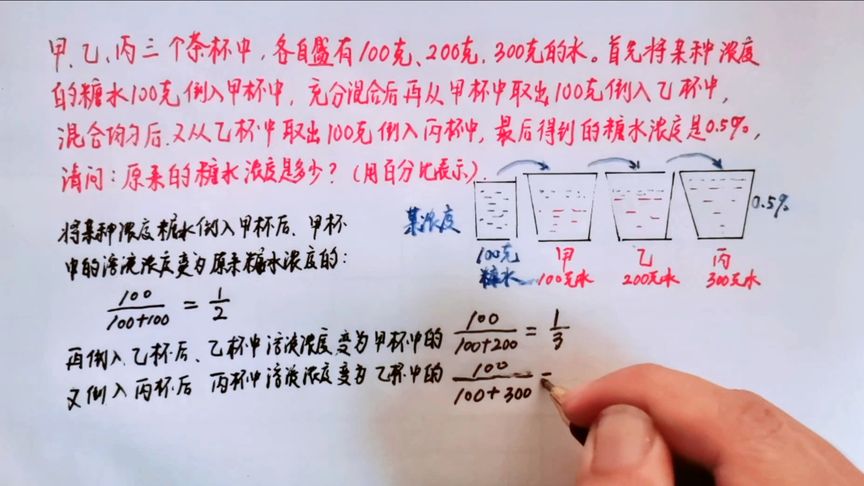 甲、乙、丙三个茶杯中,各自盛有100克、200克、300克的水。首先将某种浓度
的糖水100克倒入甲杯中,充分混合后再从甲杯中取出100克倒入乙杯中,
混合均匀后.又从乙杯中取出100克倒入丙杯中,最后得到的糖水浓度是0.5%,
请问:原来的糖水浓度是多少?(用百分比表示).
某浓度
0.5%
100克
糖水
甲
100克水
乙
200克水
丙
300克水
将某种浓度糖水倒入甲杯后、甲杯
中的溶液浓度变为原来糖水浓度的:
100/(100+100) = 1/2
再倒入乙杯后、乙杯中溶液浓度变为甲杯中的 100/(100+200) = 1/3
又倒入丙杯后 丙杯中溶液浓度变为乙杯中的 100/(100+300) =